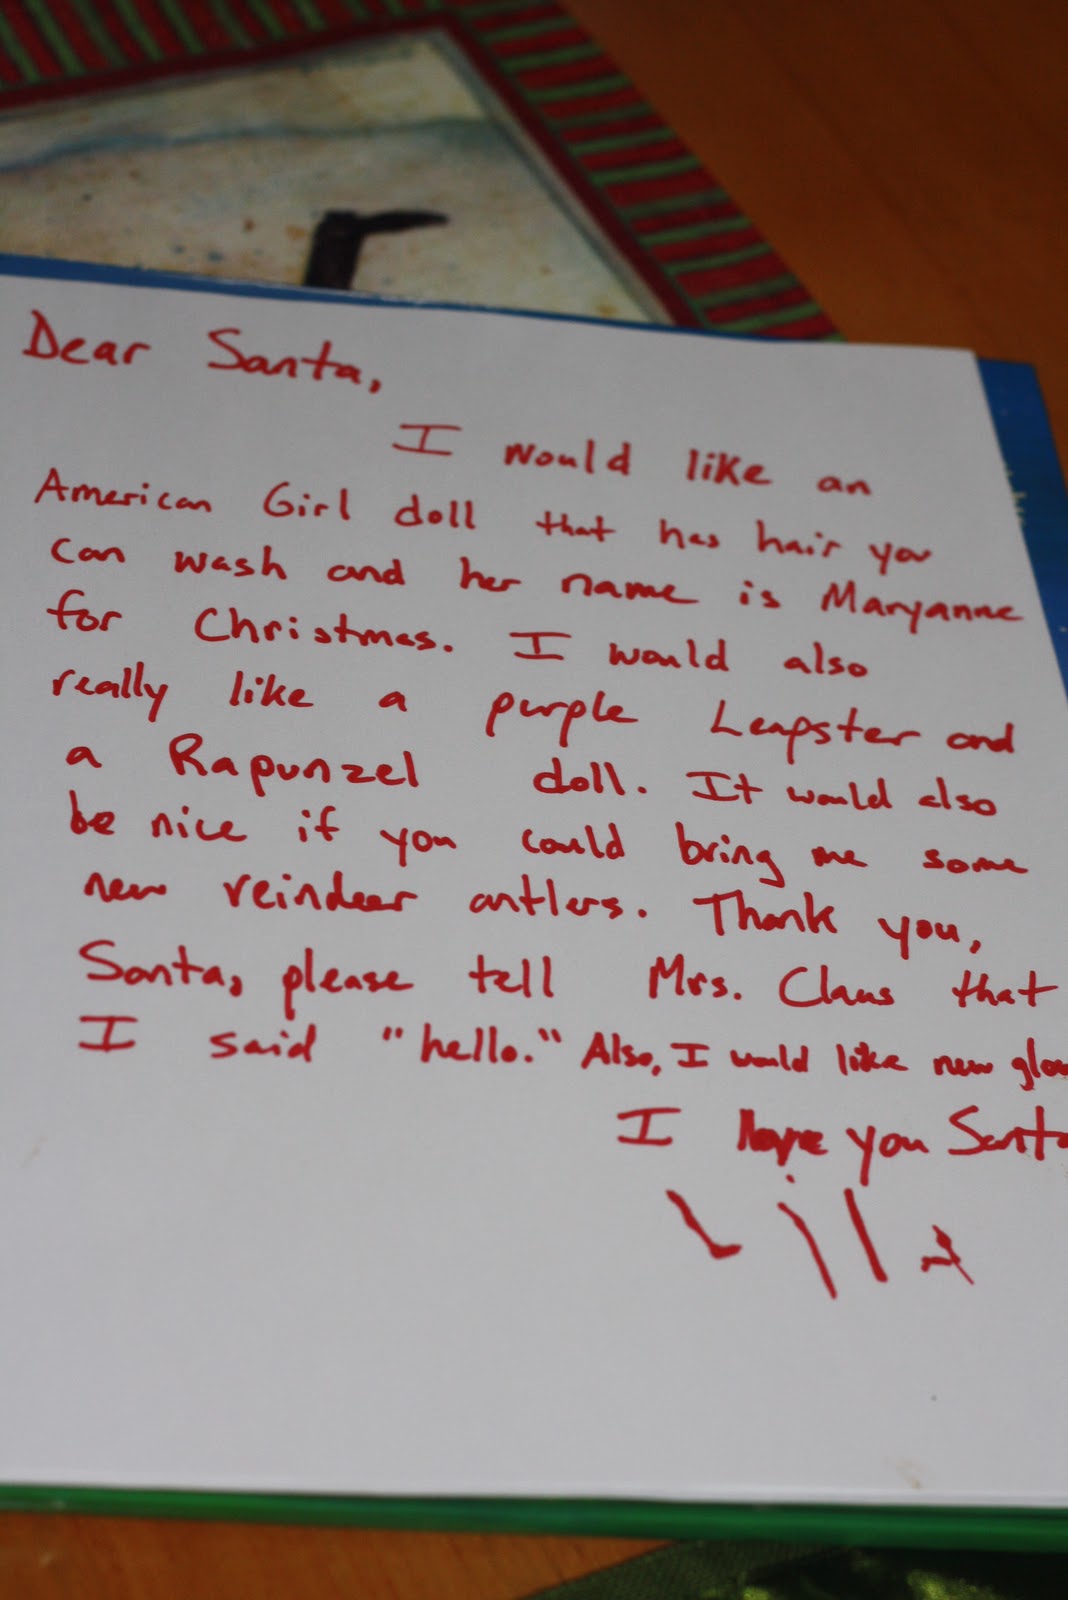 Dear Santa,
I would like an
American Girl doll that has hair you
can wash and her name is Maryanne
for Christmas. I would also
really like a purple Leapster and
a Rapunzel doll. It would also
be nice if you could bring me some
new reindeer antlers. Thank you,
Santa, please tell Mrs. Claus that
I said "hello." Also, I would like new
I hope you Santa
Lila